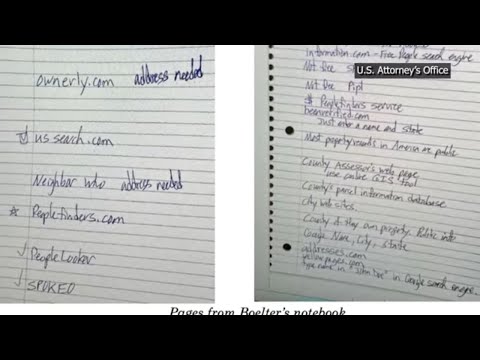 ownerly.com address needed
ussearch.com
Neighbor Who address needed
* Peoplefinders.com
✓ PeopleLooker
✓ SPOKEO
information.com - Free People search engine
U.S. Attorney's Office
Not free
Not free Pipl
$ Peoplefinders service
beenverified.com
Just enter a name and state
Most property records in America are public
County Assessor's web page
use online GIS tool
County's parcel information database
city web sites
County if they own property. Public info
Google Name, City, State
addresses.com
yellowpages.com
type name in "John Doe" in Google search engine.
Pages from Boelter's notebook